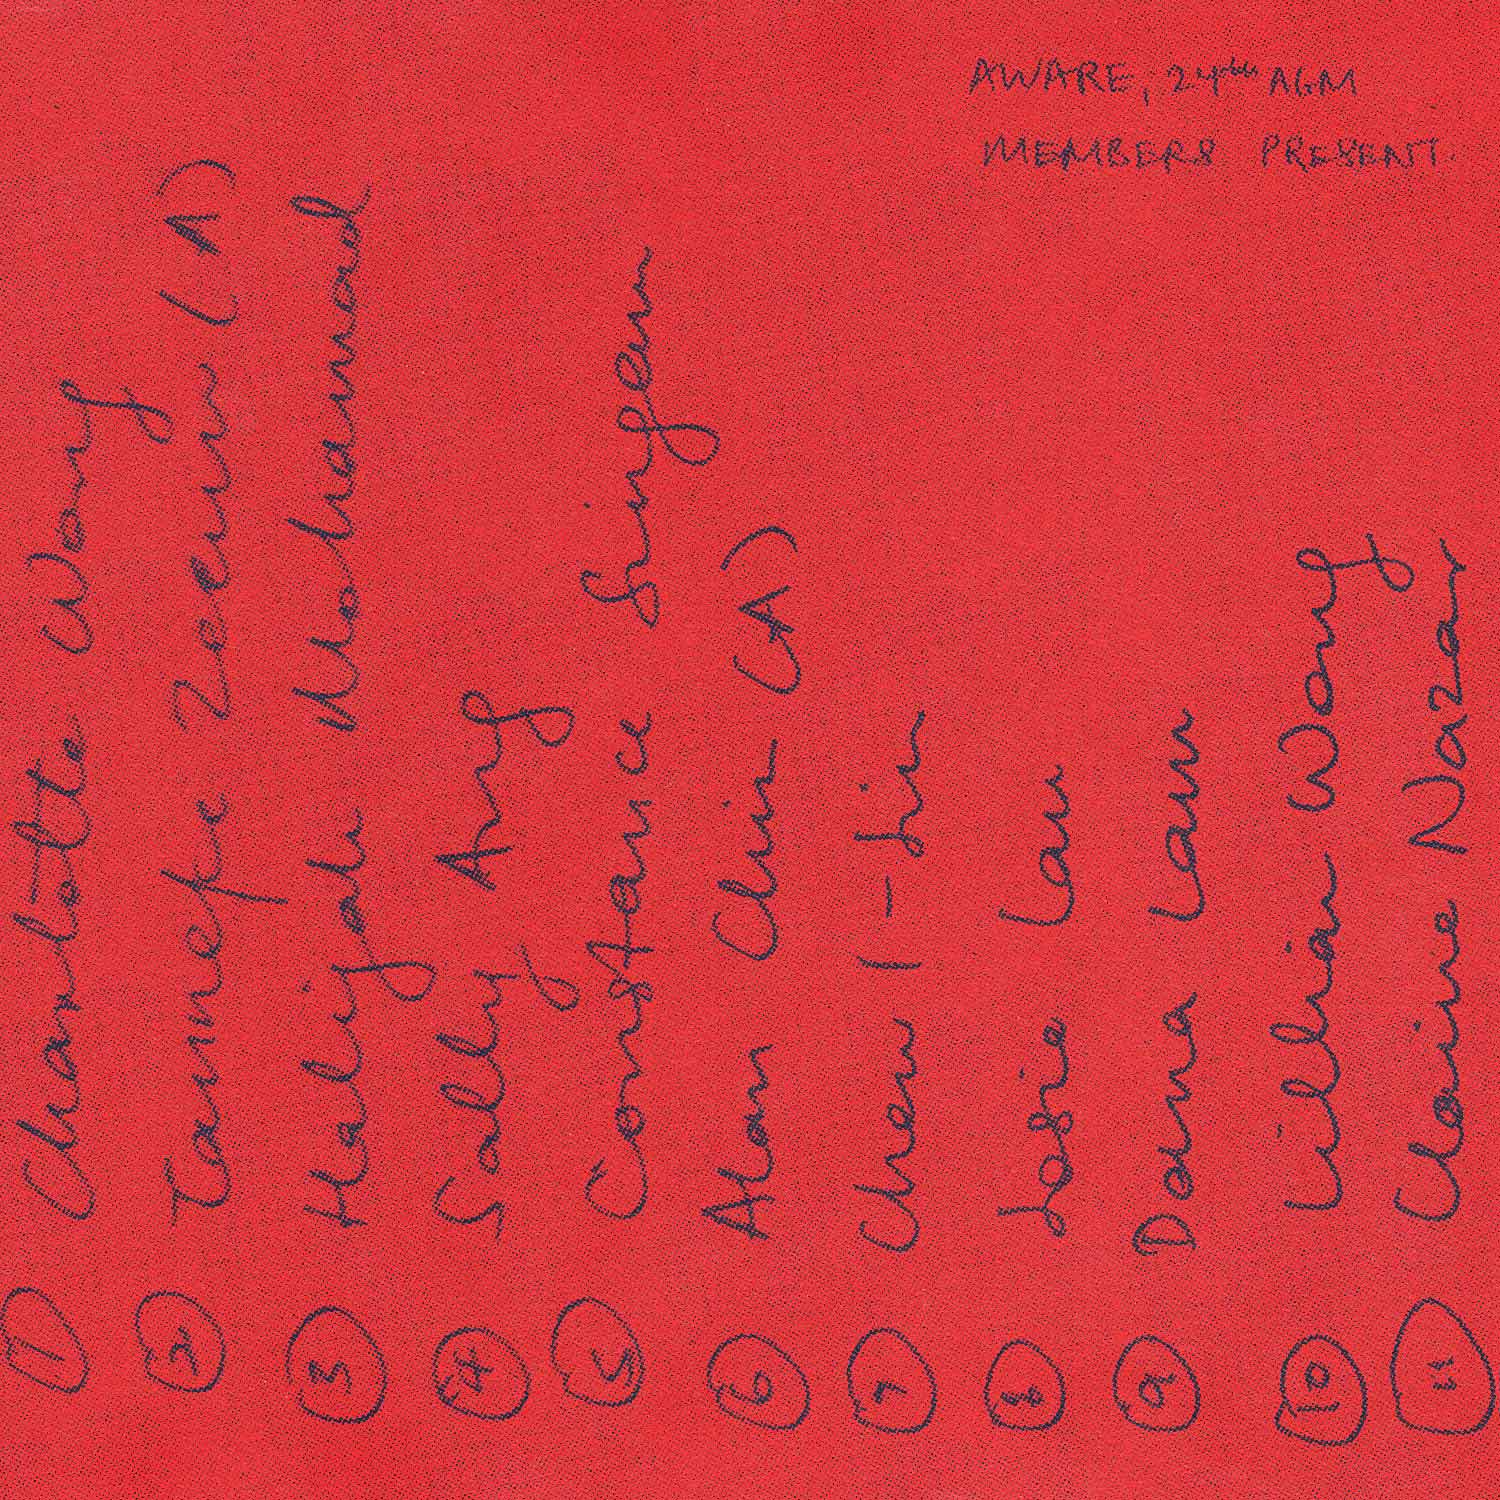 AWARE, 24th AGM
MEMBERS PRESENT.
① Charlotte Wong
② Tannefe Zeenu (A)
③ Halijah Mohamad
④ Sally Ang
⑤ Constance Singam
⑥ Alan Chin (A)
⑦ Chew I-Jin
⑧ Josie Lau
⑨ Dana Lam
⑩ Lillian Wong
⑪ Claire Nazar